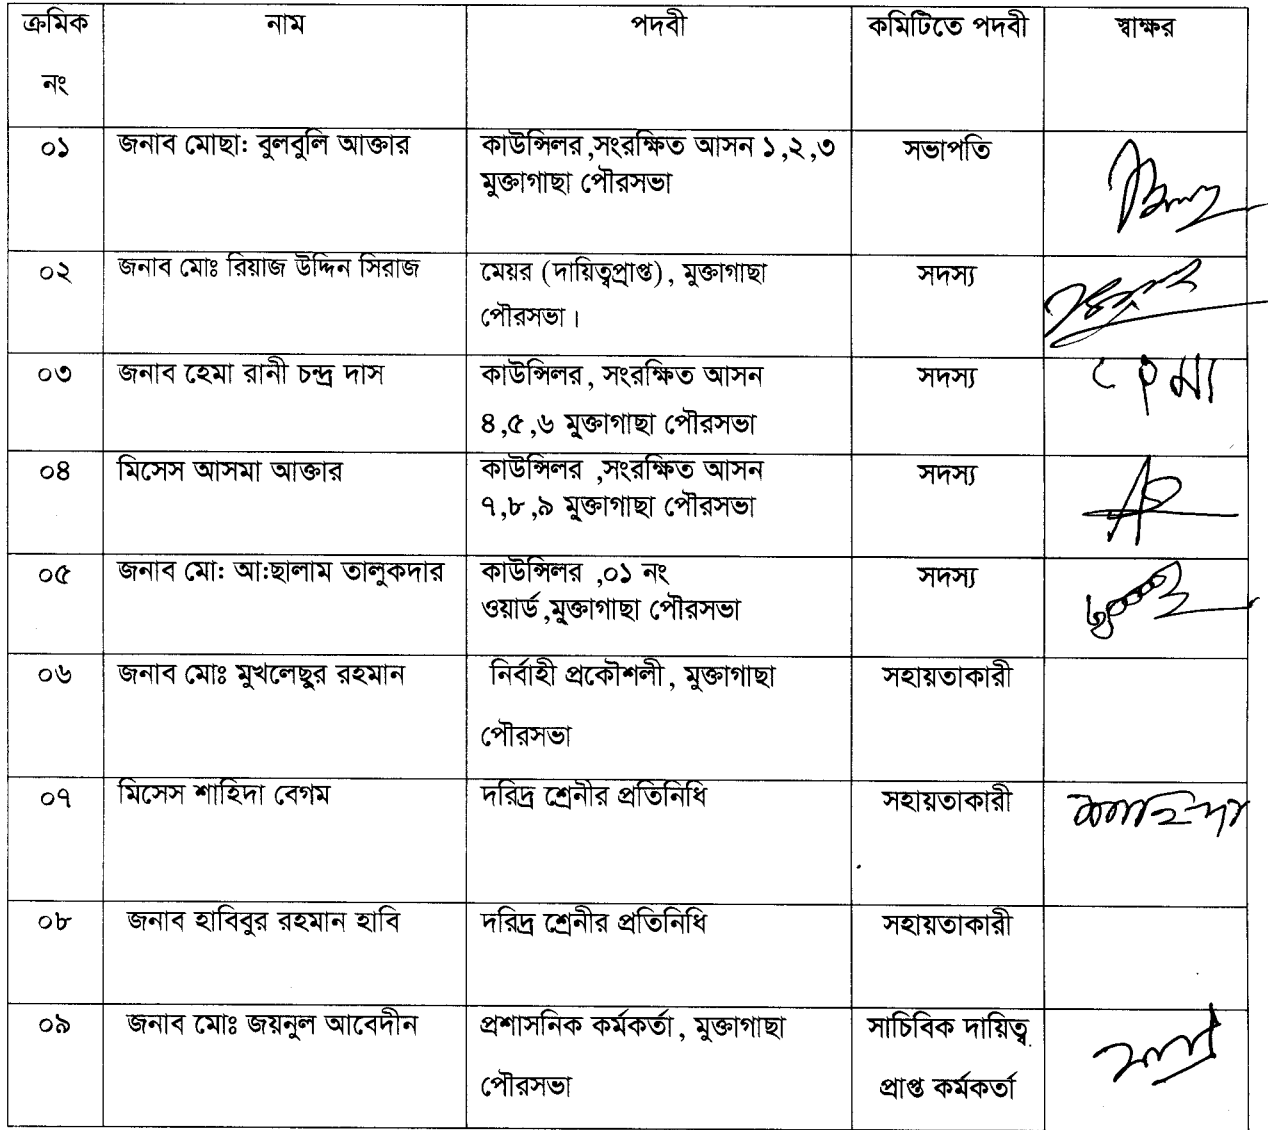 ক্রমিক নাম পদবী কমিটিতে পদবী স্বাক্ষর
নং
০১ জনাব মোছা: বুলবুলি আক্তার কাউন্সিলর ,সংরক্ষিত আসন ১,২,৩ সভাপতি
মুক্তাগাছা পৌরসভা
০২ জনাব মোঃ রিয়াজ উদ্দিন সিরাজ মেয়র (দায়িত্বপ্রাপ্ত), মুক্তাগাছা সদস্য
পৌরসভা।
০৩ জনাব হেমা রানী চন্দ্র দাস কাউন্সিলর, সংরক্ষিত আসন সদস্য হেমা
৪,৫,৬ মুক্তাগাছা পৌরসভা
০৪ মিসেস আসমা আক্তার কাউন্সিলর ,সংরক্ষিত আসন সদস্য
৭,৮,৯ মুক্তাগাছা পৌরসভা
০৫ জনাব মো: আ:ছালাম তালুকদার কাউন্সিলর ,০১ নং সদস্য
ওয়ার্ড,মুক্তাগাছা পৌরসভা
০৬ জনাব মোঃ মুখলেছুর রহমান নির্বাহী প্রকৌশলী, মুক্তাগাছা সহায়তাকারী
পৌরসভা
০৭ মিসেস শাহিদা বেগম দরিদ্র শ্রেনীর প্রতিনিধি সহায়তাকারী শাহিদা
০৮ জনাব হাবিবুর রহমান হাবি দরিদ্র শ্রেনীর প্রতিনিধি সহায়তাকারী
০৯ জনাব মোঃ জয়নুল আবেদীন প্রশাসনিক কর্মকর্তা, মুক্তাগাছা সাচিবিক দায়িত্ব
পৌরসভা প্রাপ্ত কর্মকর্তা